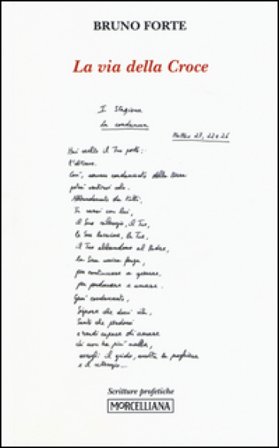 BRUNO FORTE
La via della Croce
I Stazione
La condanna
Matteo 27, 22-26
Hai scelto il Tuo posto:
l'ultimo.
Così, nessun condannato della terra
potrà sentirsi solo.
Abbandonato da tutti,
Tu sarai con lui,
il Suo silenzio, il Tuo,
la Sua la Tua,
il Tuo abbandono al Padre,
la Sua unica forza,
per continuare a sperare,
per perdonare e amare.
Gesù condannato,
Signore che dai vita,
Santo che perdoni
e rendi capace di amare
chi non ha più nulla,
accogli il grido, ascolta la preghiera
e il silenzio...
Scritture profetiche
MORCELLIANA